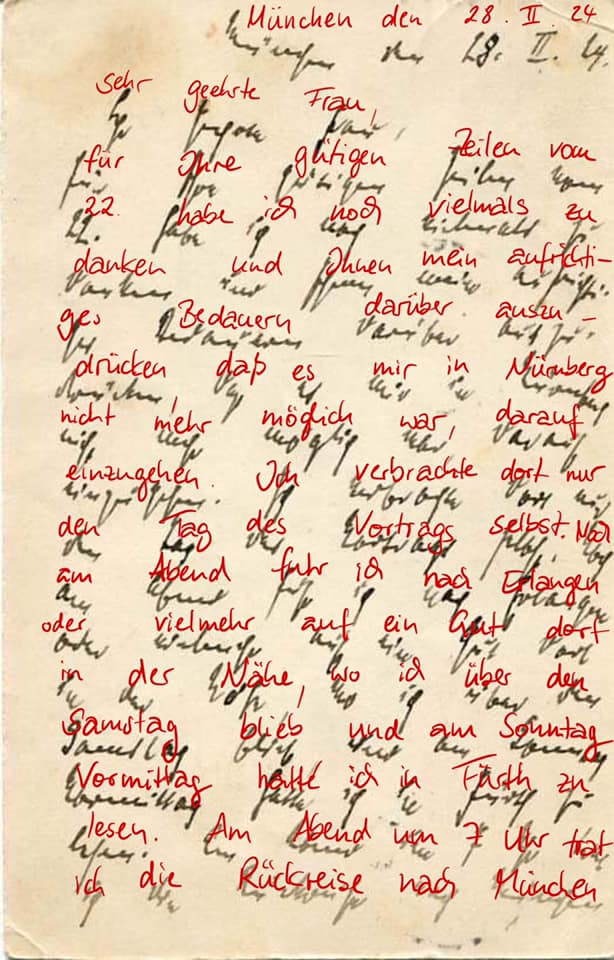 München den 28. II. 24
Sehr geehrte Frau,
für Ihre gütigen Zeilen vom
22. habe ich noch vielmals zu
danken und Ihnen mein aufrichti-
ges Bedauern darüber auszu-
drücken, daß es mir in Nürnberg
nicht mehr möglich war, darauf
einzugehen. Ich verbrachte dort nur
den Tag des Vortrags selbst. Noch
am Abend fuhr ich nach Erlangen
oder vielmehr auf ein Gut dort
in der Nähe, wo ich über den
Samstag blieb und am Sonntag
Vormittag hatte ich in Fürth zu
lesen. Am Abend um 7 Uhr trat
ich die Rückreise nach München